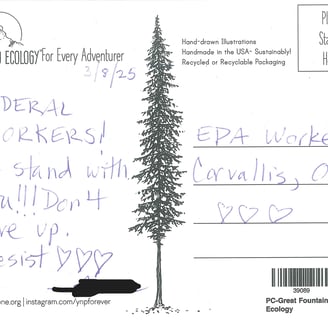 ECOLOGY® For Every Adventurer
3/8/25
DERAL
ORKERS!
stand with
u!!! Don't
ve up.
esist ♡♡♡
one.org | instagram.com/ynpforever
Hand-drawn Illustrations
Handmade in the USA- Sustainably!
Recycled or Recyclable Packaging
PL
Sta
H
EPA Worke
Corvallis, O
♡♡♡
39089
PC-Great Fountain
Ecology